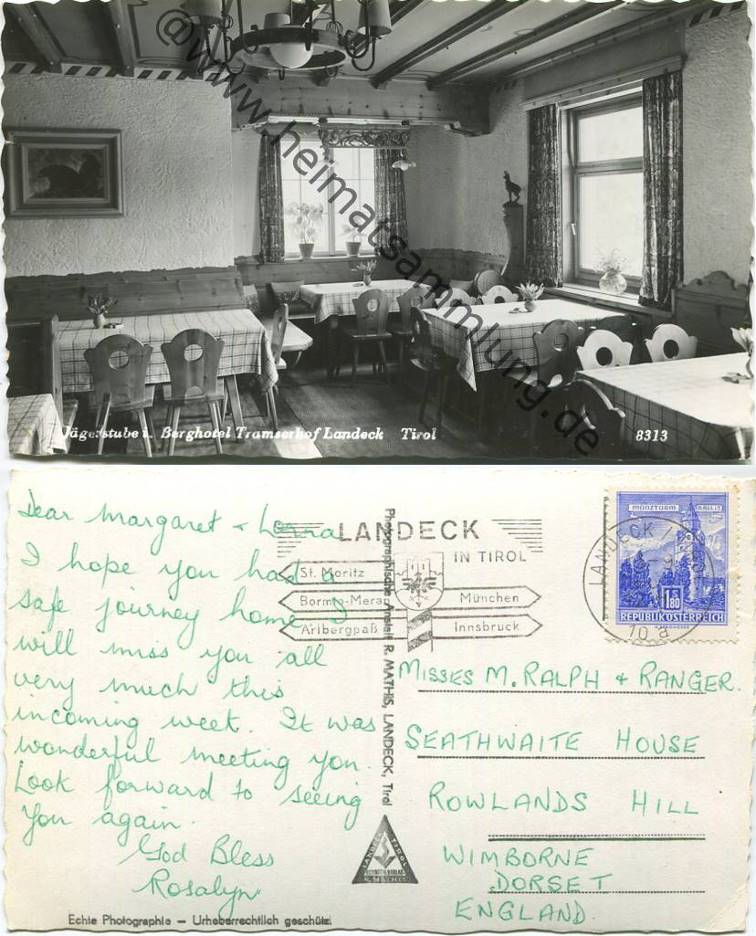 @www.heimatsammlung.de
Jägerstube i. Berghotel Tramserhof Landeck Tirol
8313
Dear Margaret + Lorna
I hope you had a
safe journey home I
will miss you all
very much this
incoming week. It was
wonderful meeting you.
Look forward to seeing
you again.
God Bless
Rosalyn
Echte Photographie – Urheberrechtlich geschützt
Photographische Anstalt R. MATHIS, LANDECK, Tirol
LANDECK
IN TIROL
St. Moritz
Bormio-Meran
Arlbergpaß
München
Innsbruck
LANDECK
10 a
MÜNZTURM HALL I.T.
1.80
REPUBLIK ÖSTERREICH
MISSES M. RALPH + RANGER.
SEATHWAITE HOUSE
ROWLANDS HILL
WIMBORNE
DORSET
ENGLAND.